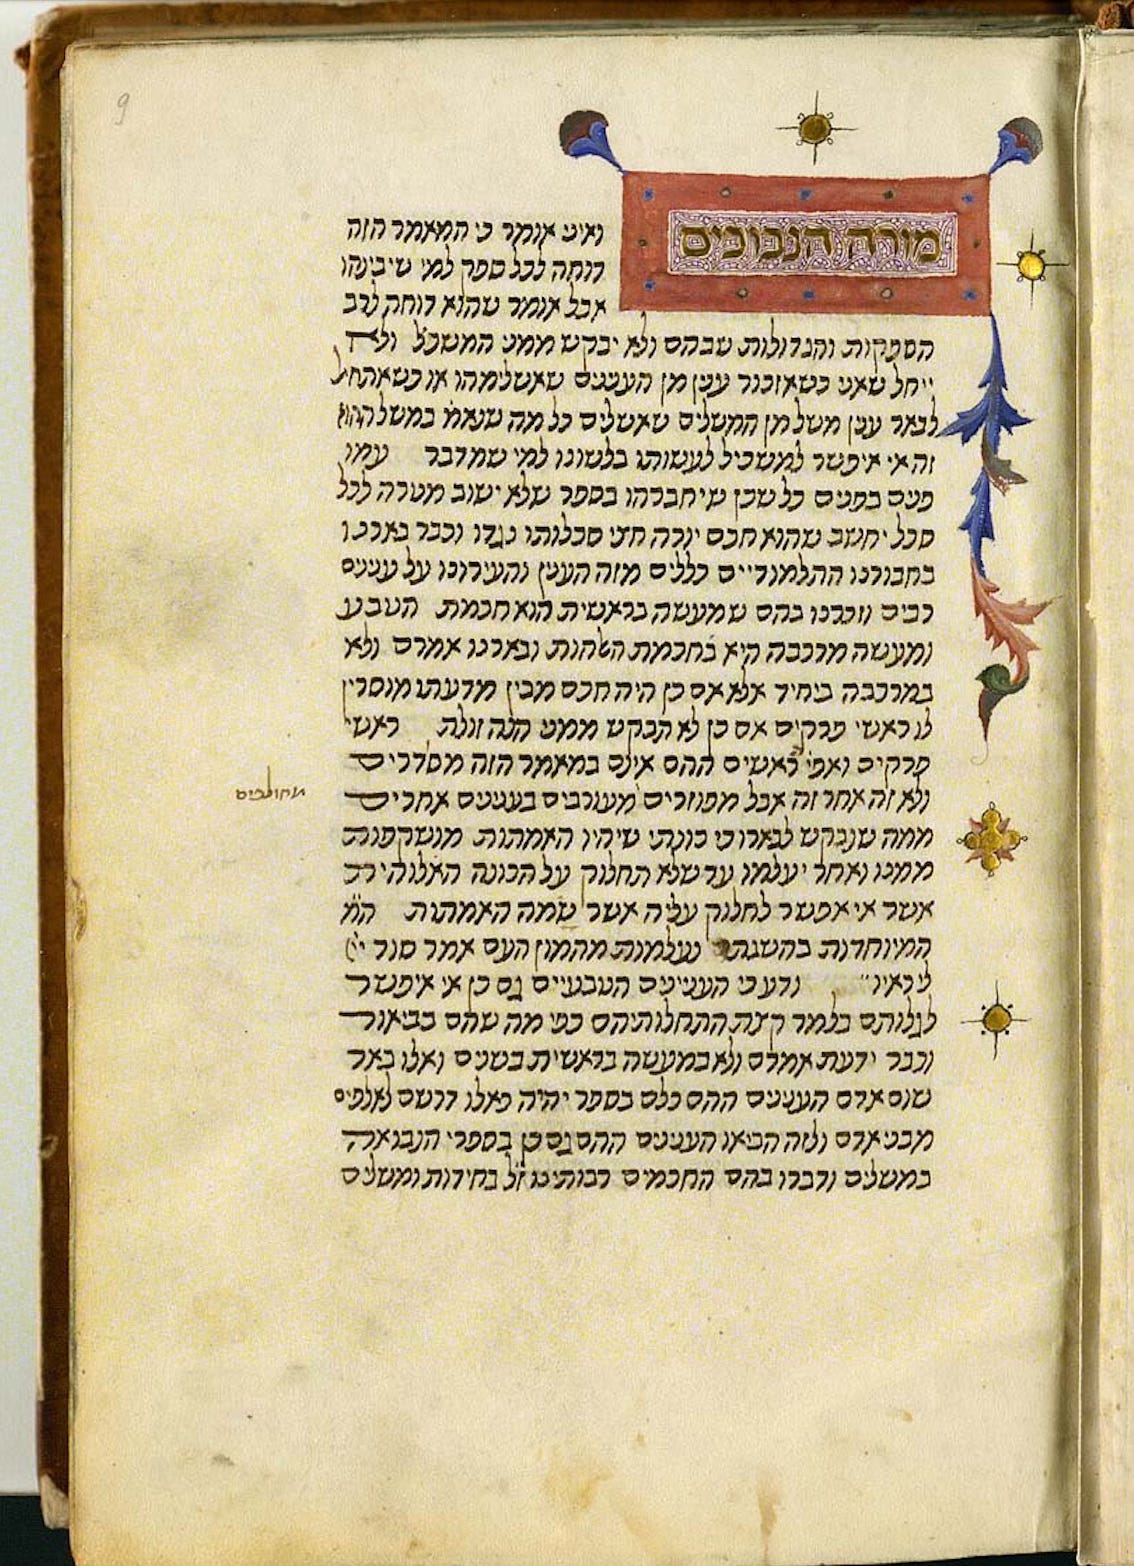 9
מורה הנבוכים
ואיני אומר כי המאמר הזה
דוחה לכל ספק למי שיבינהו
אבל אומר שהוא דוחה לרב
הספקות והגדולות שבהם ולא יבקש ממני המשכיל ולא
ייחל שאני כשאזכור ענין מן הענינים שאשלימהו או כשאתחיל
לבאר ענין משל מן המשלים שאשלים כל מה שנאמ' במשל ההוא
זה אי איפשר למשכיל לעשותו בלשונו למי שמדבר עמו
פנים בפנים כל שכן שיחברהו בספר שלא ישוב מטרה לכל
סכל יחשב שהוא חכם יורה חצי סכלותו נגדו וכבר בארנו
בחבורנו התלמודיים כללים מזה הענין והעירונו על ענינים
רבים וזכרנו בהם שמעשה בראשית הוא חכמת הטבע
ומעשה מרכבה היא בחכמת האלהות ובארנו אמרם ולא
במרכבה ביחיד אלא אם כן היה חכם מבין מדעתו מוסרין
לו ראשי פרקים אם כן לא תבקש ממני הנה זולת ראשי
פרקים ואפי' ראשים ההם אינם במאמר הזה מסדרים
ולא זה אחר זה אבל מפוזרים מעורבים בענינים אחרים
ממה שנבקש לבארו כי כונתי שיהיו האמתות מושקפות
ממנו ואחר יעלמו עד שלא תחלוק על הכונה האלוהית
אשר אי אפשר לחלוק עליה אשר שמה האמתות
המיוחדות בהשגתו נעלמות מהמון העם אמר סוד יי'
ליראיו ודע כי הענינים הטבעיים גם כן אי איפשר
לגלותם בלמד קצת התחלותיהם כפי מה שהם בביאור
וכבר ידעת אמרם ולא במעשה בראשית בשנים ואלו באר
שום אדם הענינים ההם כלם בספר יהיה כאלו דרשם לאלפים
מבני אדם ולזה הביאו הענינים ההם גם כן בספרי הנבואה
במשלים ודברו בהם החכמים רבותינו ז"ל בחידות ומשלים